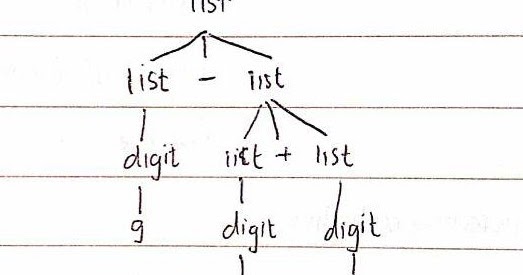 list
list - list
digit list + list
9 digit digit